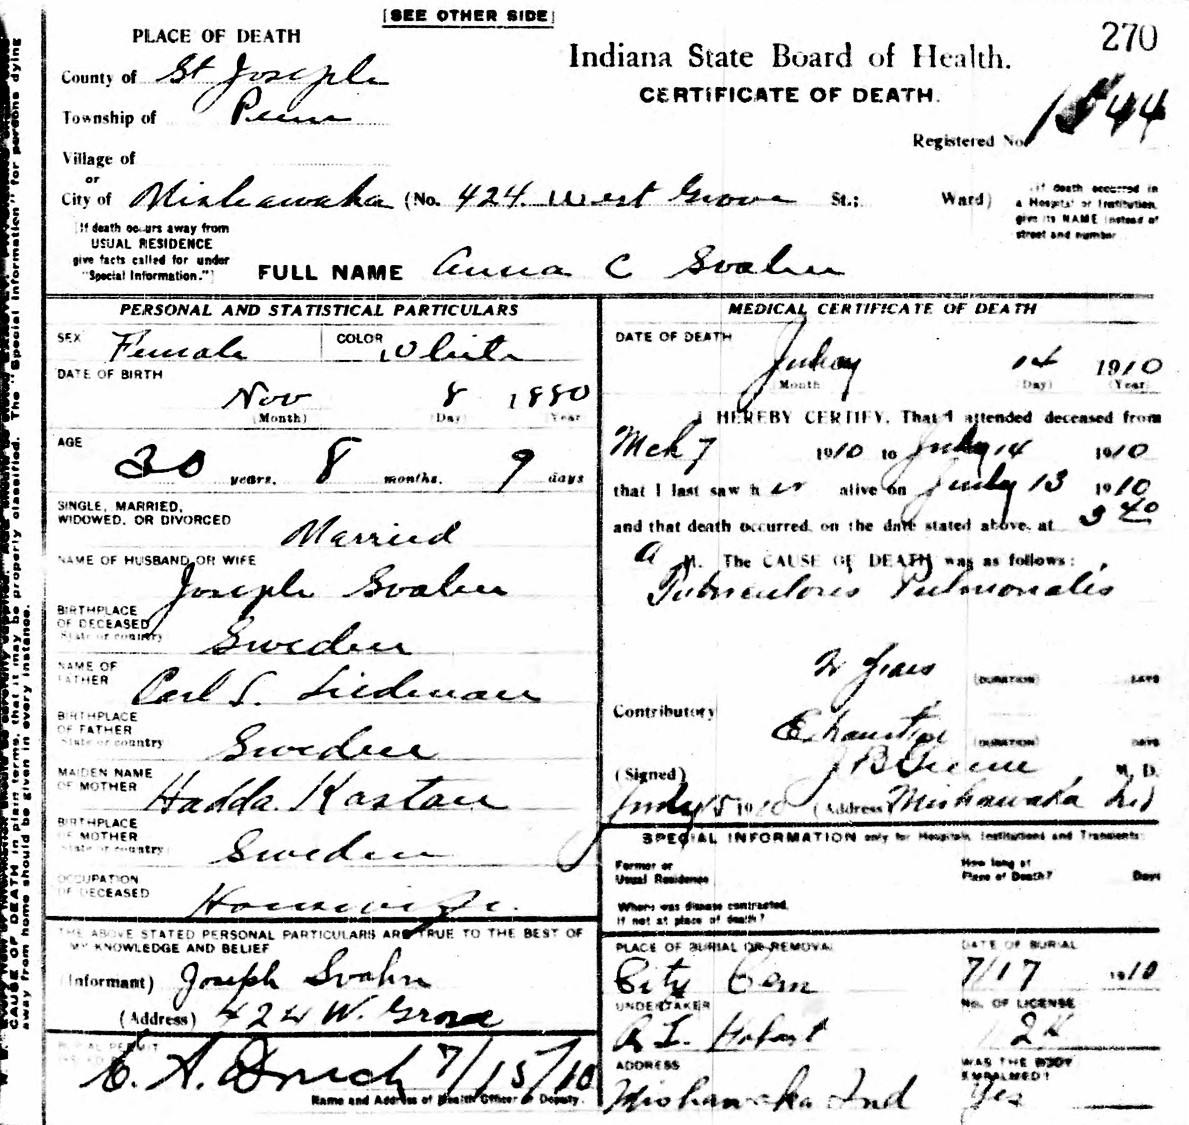 [SEE OTHER SIDE]
270
PLACE OF DEATH
Indiana State Board of Health.
CERTIFICATE OF DEATH.
County of St Joseph
Township of Penn
Registered No. 44
Village of
or
City of Mishawaka (No. 424. West Grove St.; Ward)
[If death occurs away from
USUAL RESIDENCE
give facts called for under
"Special Information."]
If death occurred in
a Hospital or Institution,
give its NAME instead of
street and number
FULL NAME Anna C Svahn
PERSONAL AND STATISTICAL PARTICULARS
SEX Female COLOR White
DATE OF BIRTH
Nov 8 1880
(Month) (Day) (Year
AGE
30 years, 8 months, 9 days
SINGLE, MARRIED,
WIDOWED, OR DIVORCED
Married
NAME OF HUSBAND OR WIFE
Joseph Svahn
BIRTHPLACE
OF DECEASED
State or country
Sweden
NAME OF
FATHER
Carl S. Liedman
BIRTHPLACE
OF FATHER
State or country
Sweden
MAIDEN NAME
OF MOTHER
Hadda Kastan
BIRTHPLACE
OF MOTHER
State or country
Sweden
OCCUPATION
OF DECEASED
Housewife.
THE ABOVE STATED PERSONAL PARTICULARS ARE TRUE TO THE BEST OF
MY KNOWLEDGE AND BELIEF
(Informant) Joseph Svahn
(Address) 424 W. Grove
7/15/10
Name and Address of Health Officer or Deputy.
MEDICAL CERTIFICATE OF DEATH
DATE OF DEATH
July 14 1910
(Month (Day) (Year
I HEREBY CERTIFY, That I attended deceased from
Mch 7 1910 to July 14 1910
that I last saw her alive on July 13 1910
and that death occurred, on the date stated above, at 3 40
a M. The CAUSE OF DEATH was as follows:
Tuberculosis Pulmonalis
2 years (DURATION) DAYS
Contributory
Exhaustion (DURATION) DAYS
(Signed) J B Greene M. D.
July 15 1910 (Address Mishawaka Ind
SPECIAL INFORMATION only for Hospitals, Institutions and Transients:
Former or
Usual Residence
How long at
Place of Death? Days
Where was disease contracted,
if not at place of death?
PLACE OF BURIAL OR REMOVAL
City Cem
DATE OF BURIAL
7/17 1910
UNDERTAKER
NO. OF LICENSE
ADDRESS
Mishawaka Ind
WAS THE BODY
EMBALMED?
Yes
CAUSE OF DEATH in plain terms, that it may be properly classified. The "Special Information" for persons dying
away from home should be given in every instance.